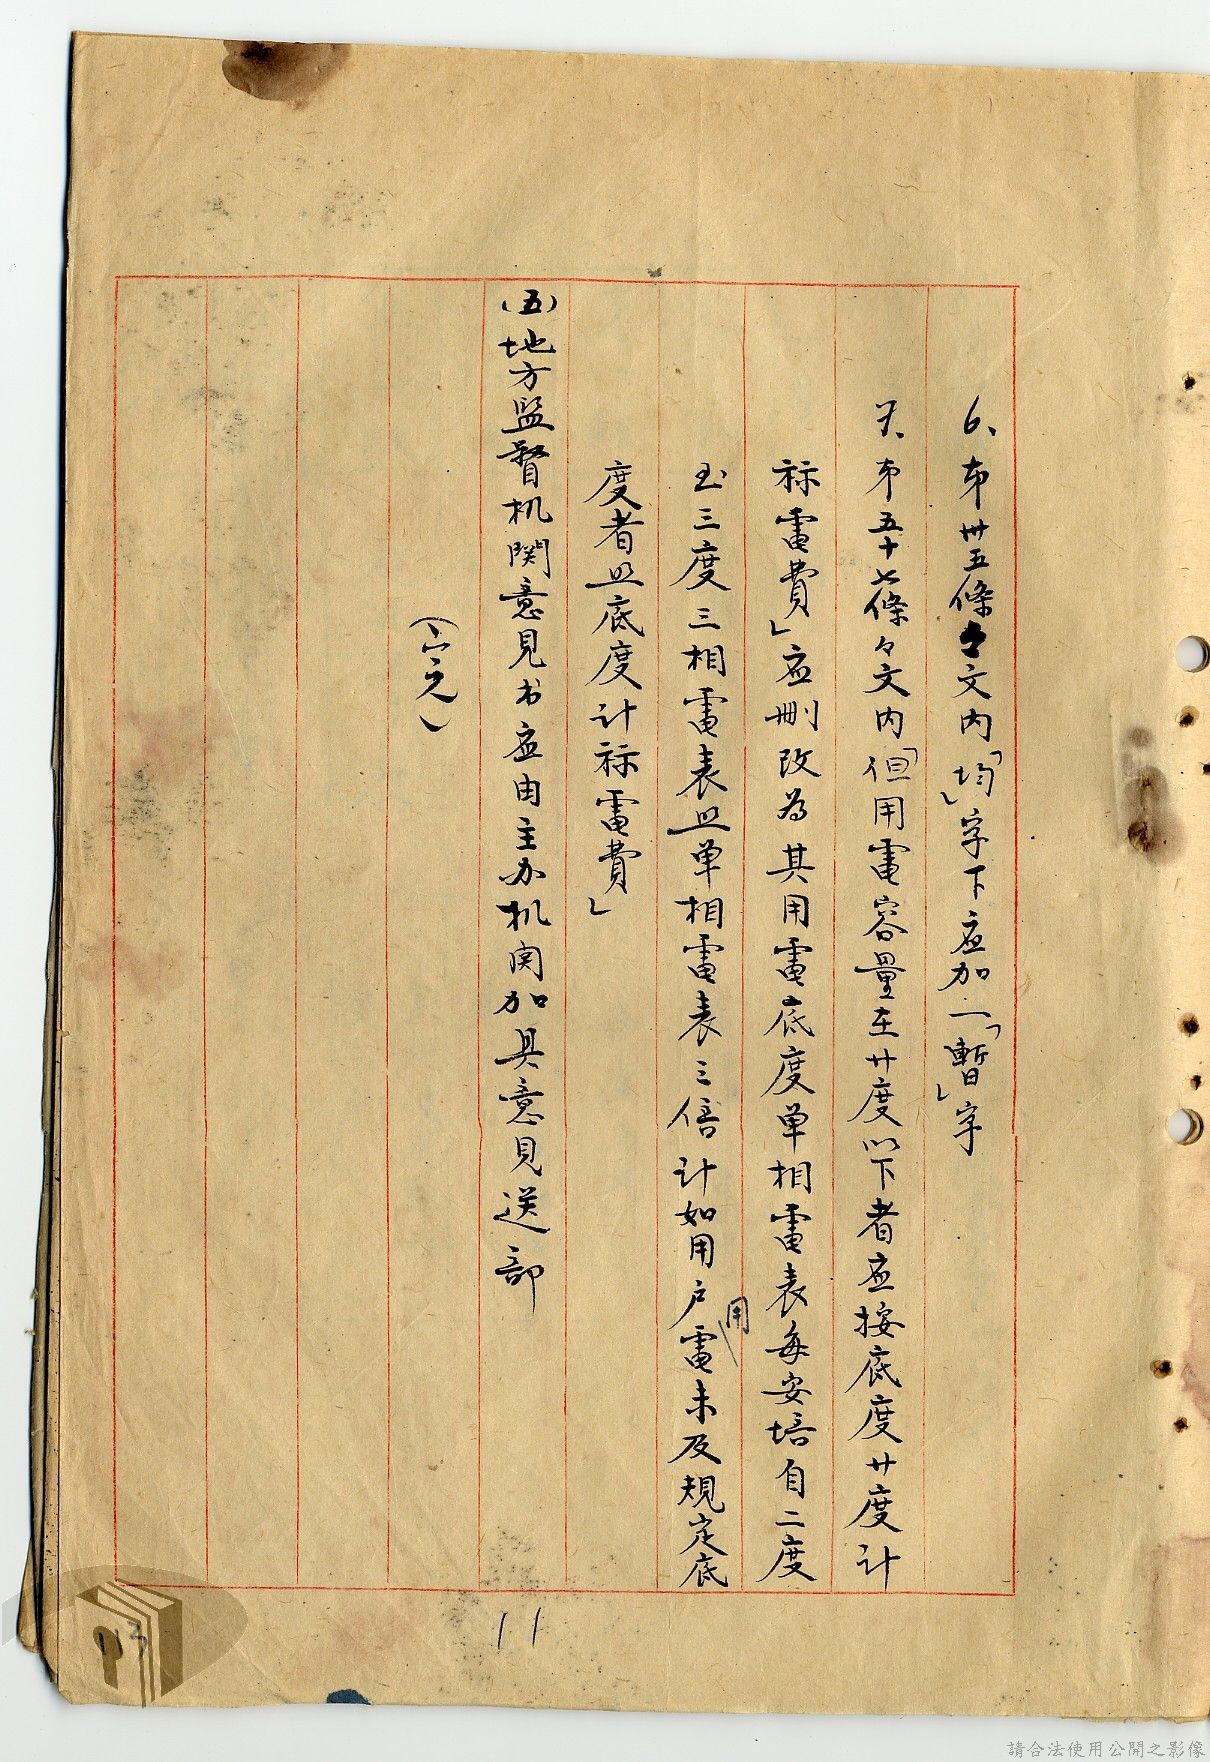 6、第卅五條々文內「均」字下应加一「暫」字
7、第五十七條々文內「但用電容量在廿度以下者应按底度廿度計
标電費」应刪改為其用電底度单相電表每安培自二度
至三度三相電表照单相電表三倍計如用户用電未及規定底
度者照底度計标電費」
(五)地方监督机関意見书应由主办机関加具意見送部
(完)
11
113
請合法使用公開之影像